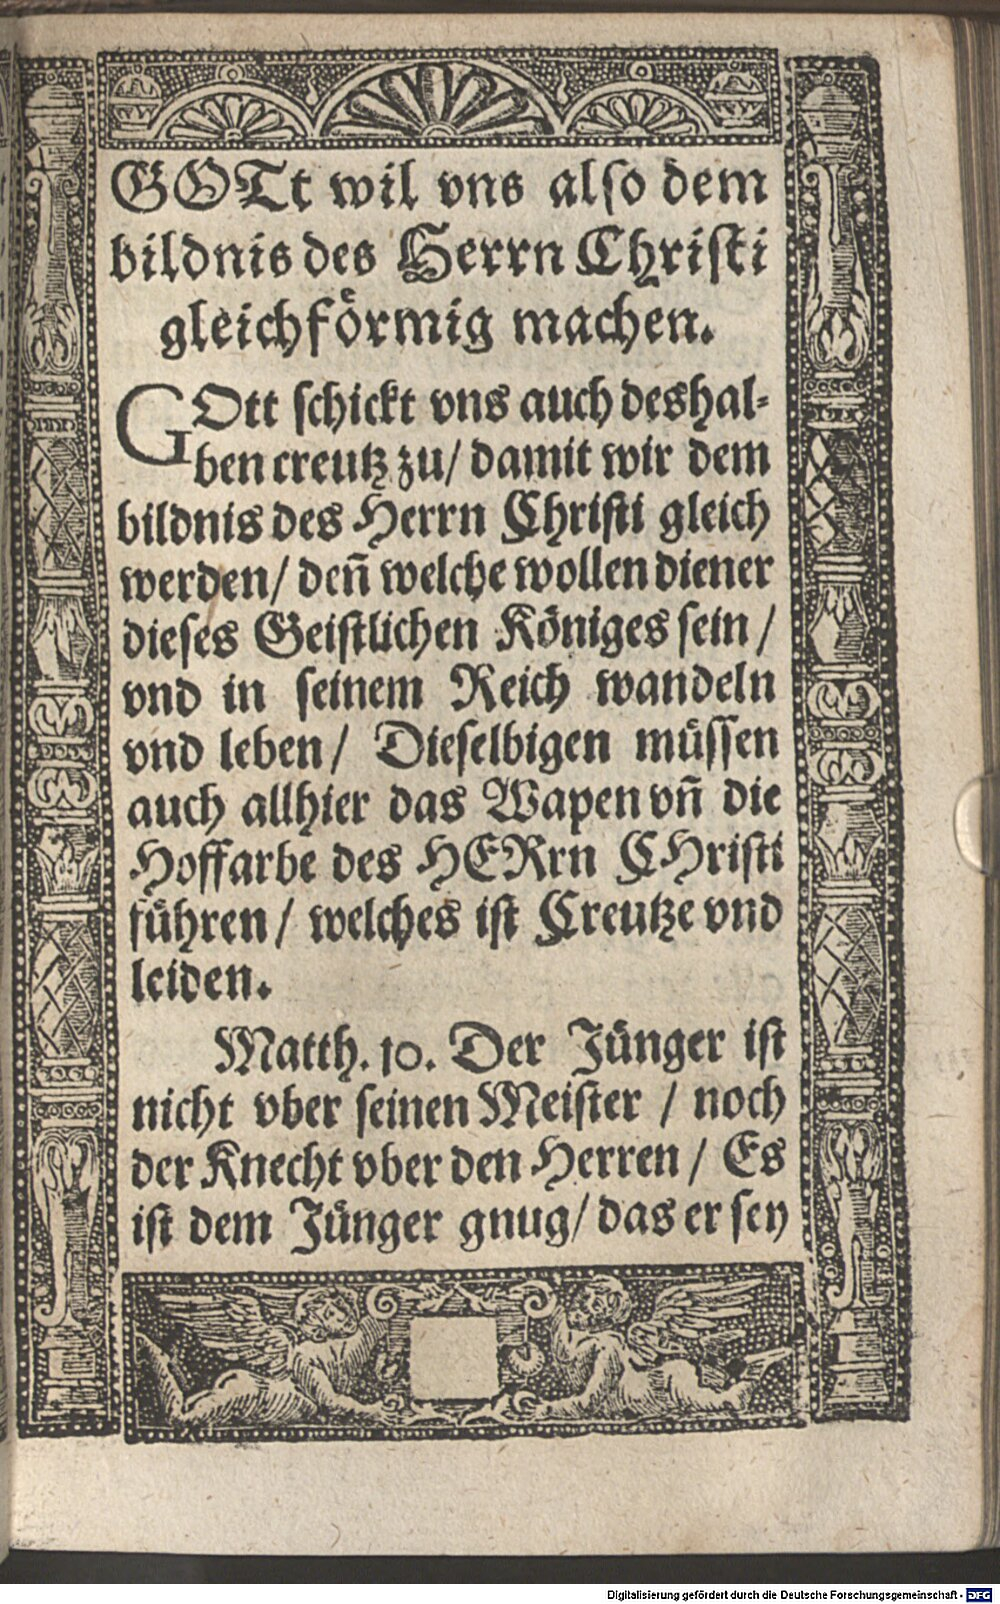 GOTt wil vns alſo dem
bildnis des Herrn Chriſti
gleichfoͤrmig machen.
GOtt ſchickt vns auch deshal-
ben creutz zu/ damit wir dem
bildnis des Herrn Chriſti gleich
werden/ deñ welche wollen diener
dieſes Geiſtlichen Königes ſein/
vnd in ſeinem Reich wandeln
vnd leben/ Dieſelbigen müſſen
auch allhier das Wapen vñ die
Hoffarbe des HERrn CHriſti
führen/ welches iſt Creutze vnd
leiden.
Matth. 10. Der Jünger iſt
nicht vber ſeinen Meiſter / noch
der Knecht vber den Herren/ Es
iſt dem Jünger gnug/ das er ſey
Digitalisierung gefördert durch die Deutsche Forschungsgemeinschaft - DFG